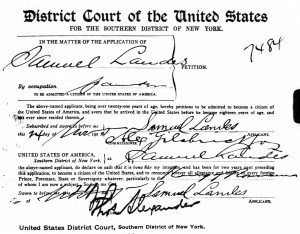 District Court of the United States
FOR THE SOUTHERN DISTRICT OF NEW YORK.
IN THE MATTER OF THE APPLICATION OF
7484
Samuel Landes
PETITION.
By occupation,
TO BE ADMITTED A CITIZEN OF THE UNITED STATES OF AMERICA.
The above-named applicant, being over twenty-one years of age, hereby petitions to be admitted to become a citizen of the
United States of America, and avers that he arrived in the United States before he became eighteen years of age, and
has ever since resided therein.
Subscribed and sworn to before me
this
Samuel Landes
APPLICANT.
COMMISSIONER.
UNITED STATES OF AMERICA,
Southern District of New York,
Samuel Landes
the above-named applicant, do declare on oath that it is bona fide my intention, and has been for two years next preceding
this application, to become a citizen of the United States, and to renounce forever all allegiance and fidelity to every foreign
Prince, Potentate, State or Sovereignty whatever, particularly to the
of whom I am now a subject.
Sworn to before
Samuel Landes
APPLICANT.
Alexander
United States District Court, Southern District of New York.